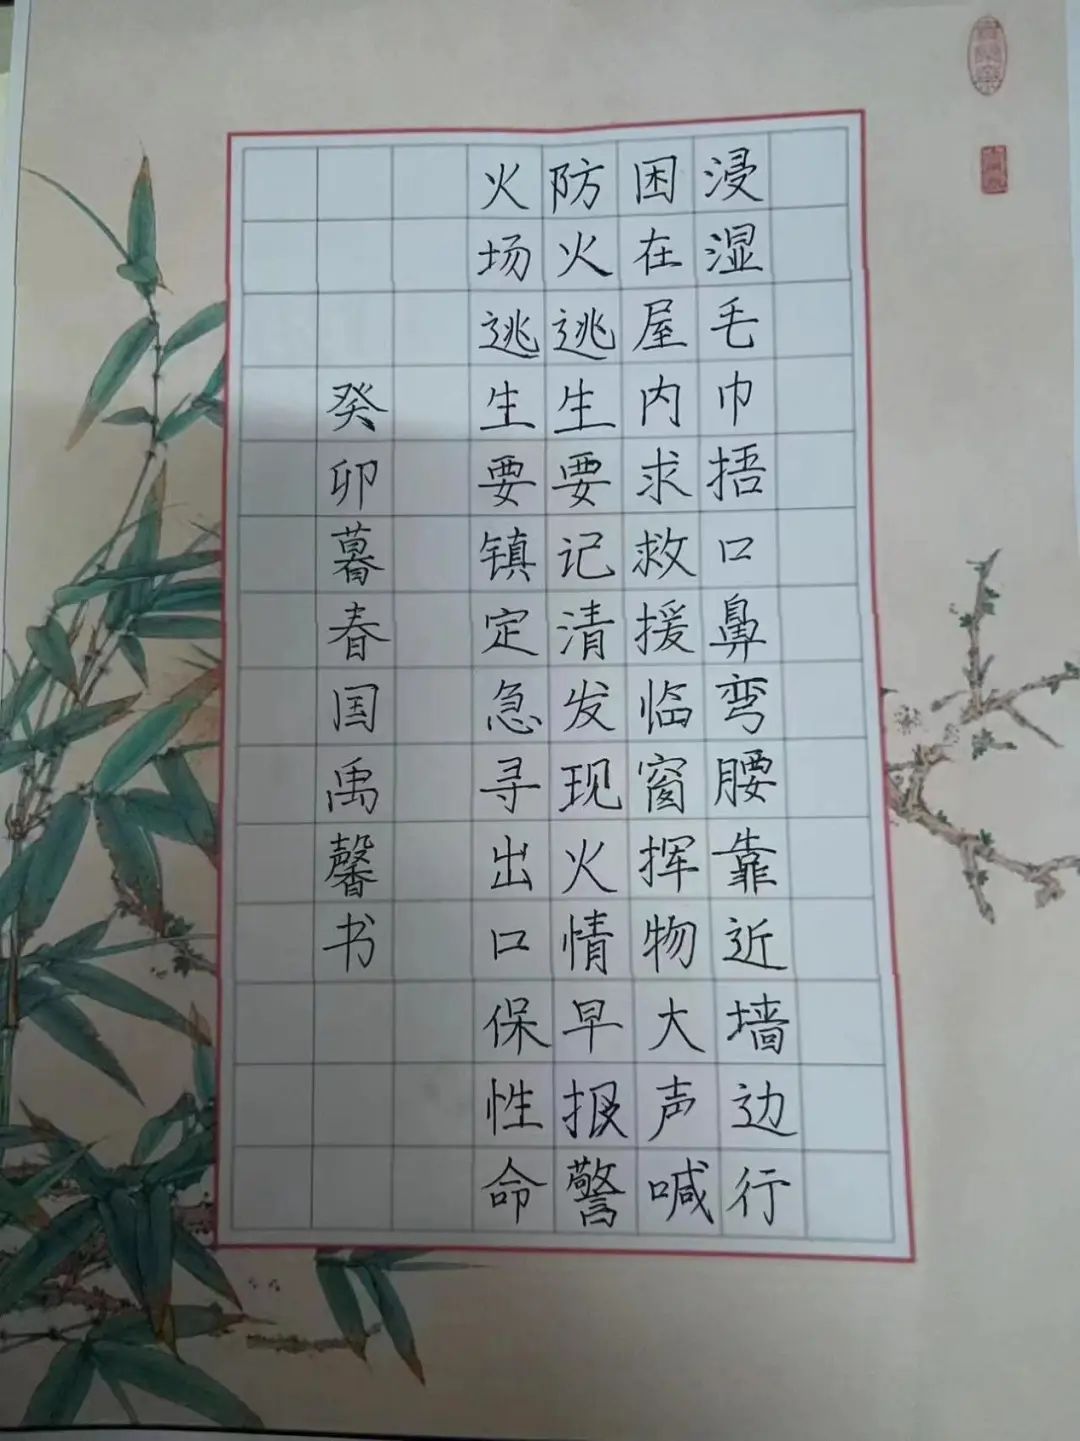 浸湿毛巾捂口鼻弯腰靠近墙边行
困在屋内求救援临窗挥物大声喊
防火逃生要记清发现火情早报警
火场逃生要镇定急寻出口保性命
癸卯暮春国禹馨书